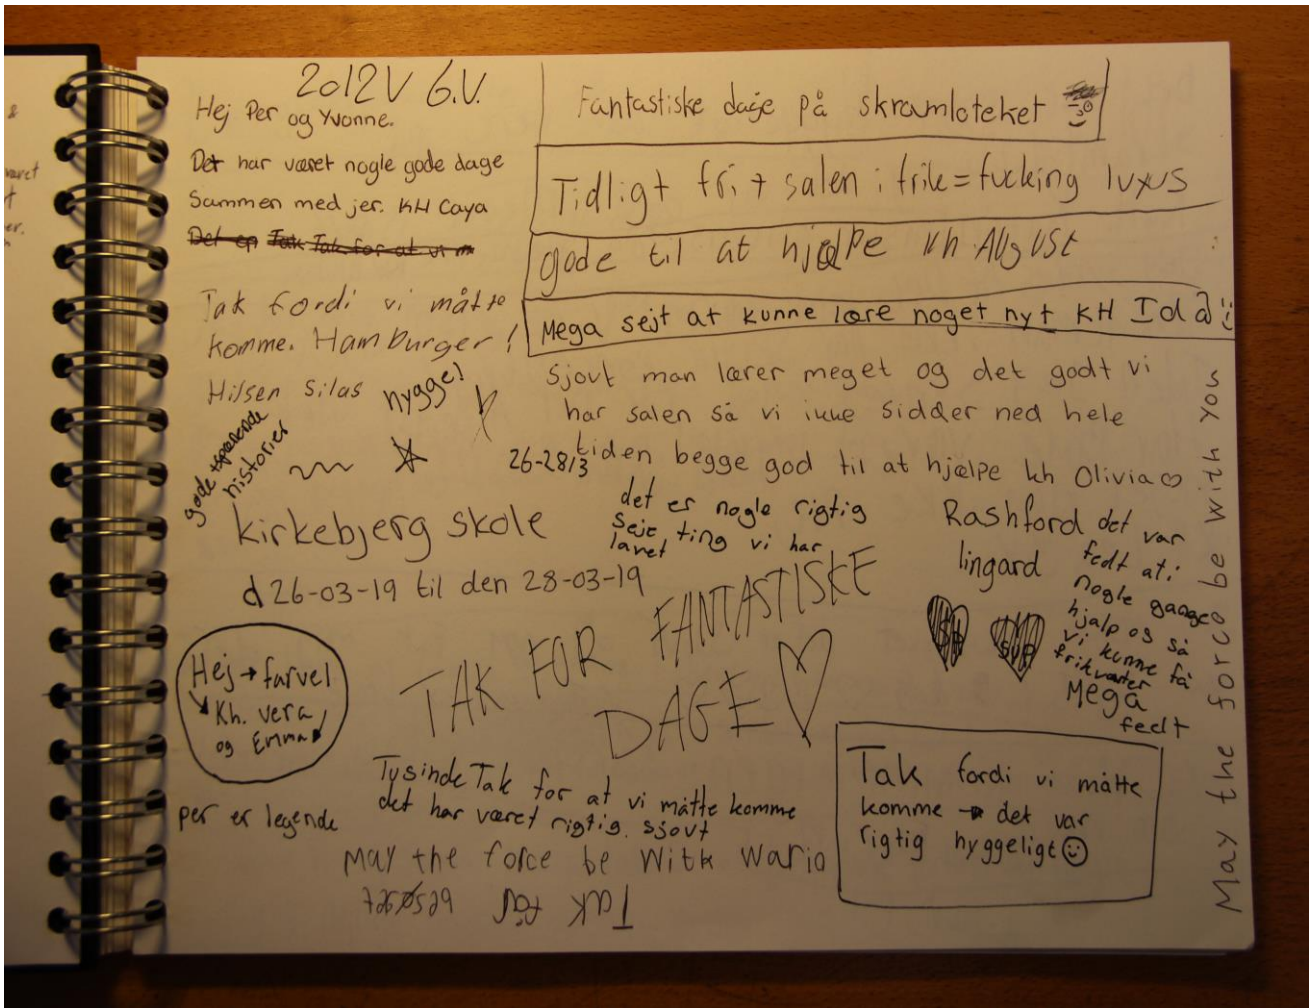 2012V 6.V.
Hej Per og Yvonne.
Det har været nogle gode dage
Sammen med jer. KH Caya
Det en Tak Tak for at vi m
Tak fordi vi måtte
komme. Hamburger!
Hilsen Silas
hygge!
gode + spænende
historier
Fantastiske dage på skramloteket
Tidligt fri + salen i frik = fucking luxus
gode til at hjælpe kh AUgUSt
Mega sejt at kunne lære noget nyt KH Ida
Sjovt man lærer meget og det godt vi
har salen så vi ikke sidder ned hele
tiden begge god til at hjælpe kh Olivia
26-28/3
kirkebjerg skole
d 26-03-19 til den 28-03-19
det er nogle rigtig
seje ting vi har
lavet
Rashford
lingard
det var
fedt at i
nogle gange
hjalp og så
vi kunne få
frikvarter
Mega
fedt
TAK FOR FANTASTISKE
DAGE
Hej → farvel
Kh. vera
og Emma
per er legende
Tusinde Tak for at vi måtte komme
det har været rigtig sjovt
May the force be With Wario
Tak for
Tak fordi vi måtte
komme → det var
rigtig hyggeligt
May the force be with you